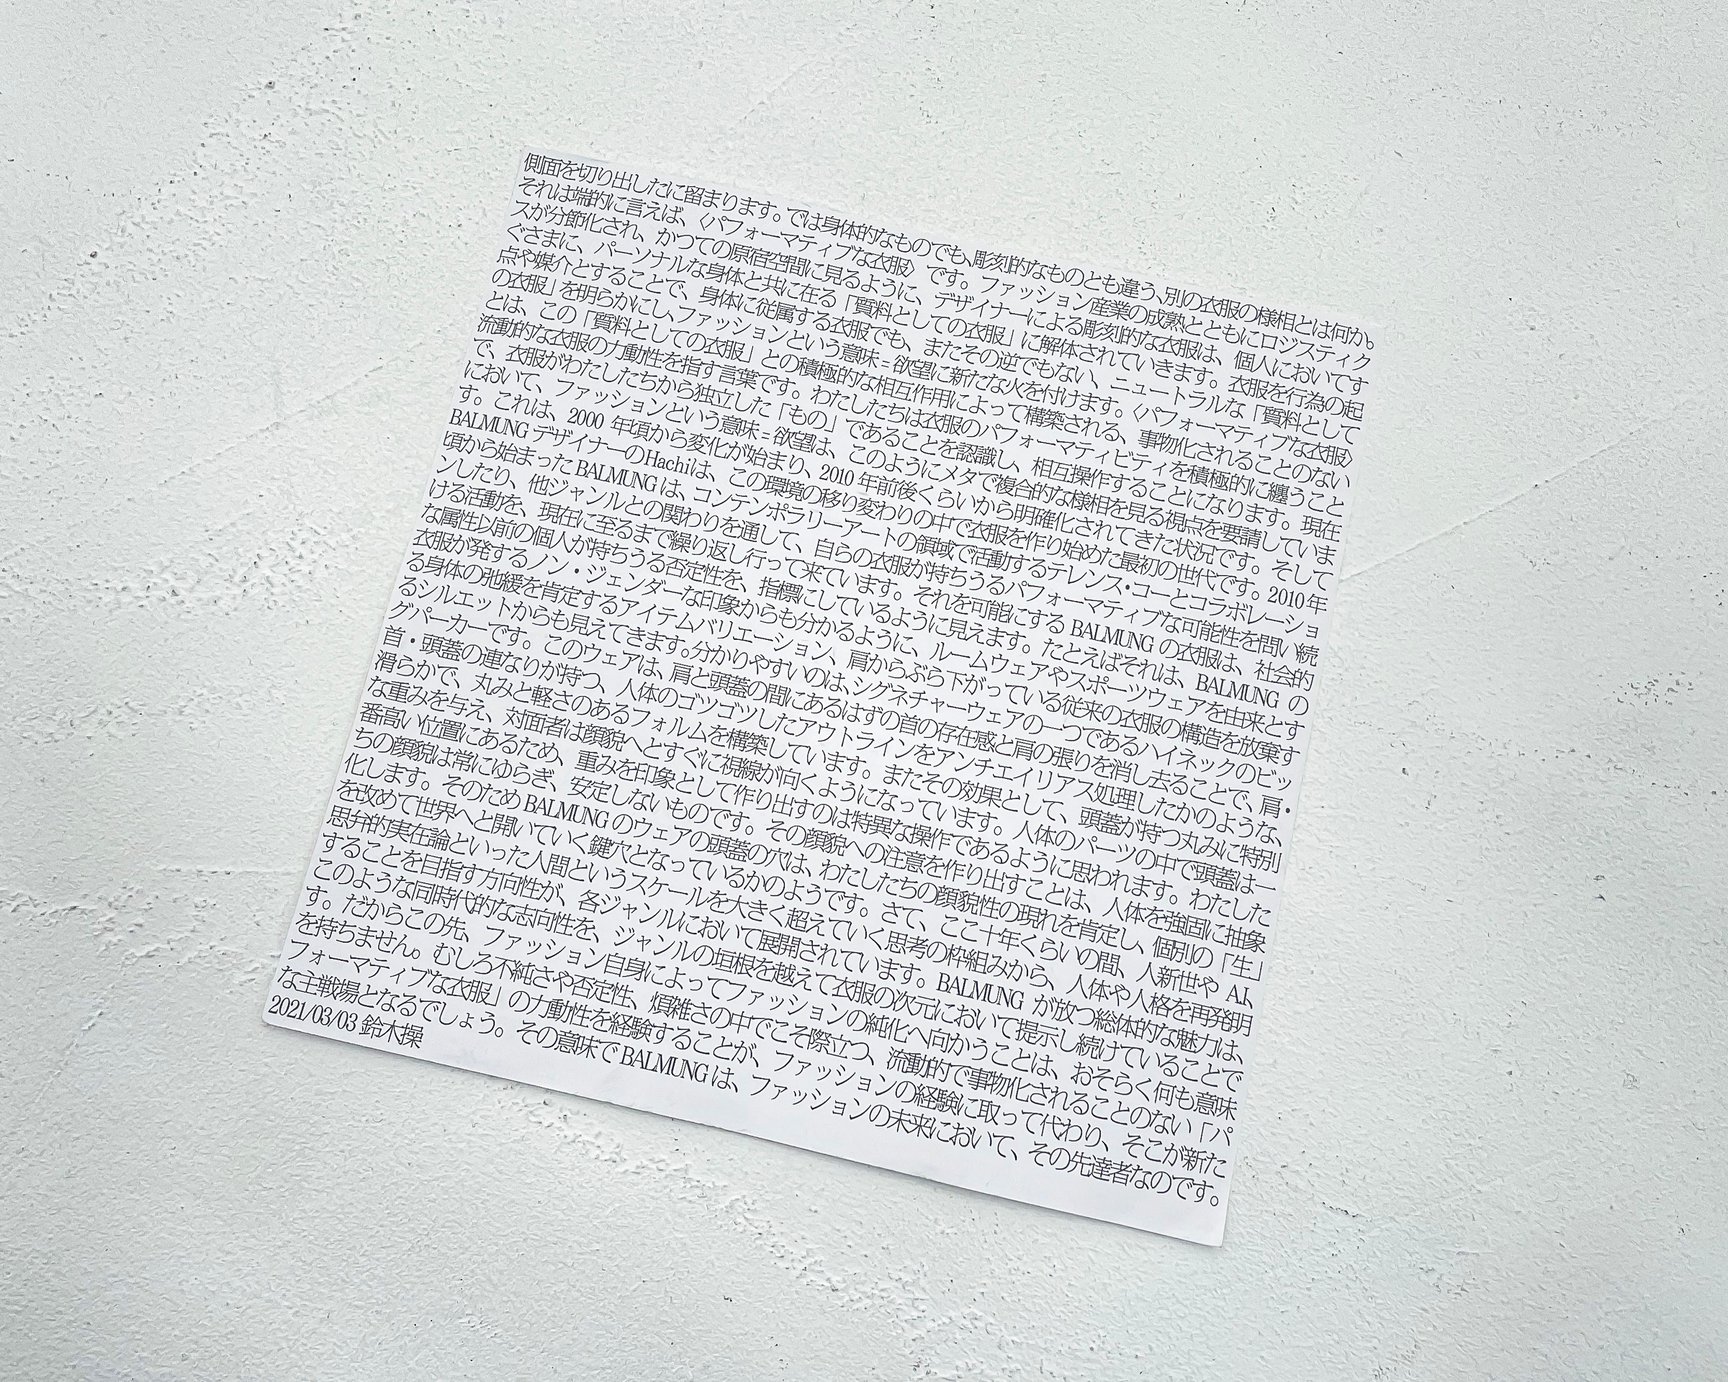 側面を切り出したに留まります。では身体的なものでも、彫刻的なものとも違う、別の衣服の様相とは何か。
それは端的に言えば、〈パフォーマティブな衣服〉です。ファッション産業の成熟とともにロジスティク
スが分節化され、かつての原宿空間に見るように、デザイナーによる彫刻的な衣服は、個人においてす
ぐさまに、パーソナルな身体と共に在る「質料としての衣服」に解体されていきます。衣服を行為の起
点や媒介とすることで、身体に従属する衣服でも、またその逆でもない、ニュートラルな「質料として
の衣服」を明らかにし、ファッションという意味=欲望に新たな火を付けます。〈パフォーマティブな衣服〉
とは、この「質料としての衣服」との積極的な相互作用によって構築される、事物化されることのない
流動的な衣服の力動性を指す言葉です。わたしたちは衣服のパフォーマティビティを積極的に纏うこと
で、衣服がわたしたちから独立した「もの」であることを認識し、相互操作することになります。現在
において、ファッションという意味=欲望は、このようにメタで複合的な様相を見る視点を要請していま
す。これは、2000 年頃から変化が始まり、2010 年前後くらいから明確化されてきた状況です。そして
BALMUNG デザイナーのHachiは、この環境の移り変わりの中で衣服を作り始めた最初の世代です。2010 年
頃から始まった BALMUNG は、コンテンポラリーアートの領域で活動するテレンス・コーとコラボレーショ
ンしたり、他ジャンルとの関わりを通して、自らの衣服が持ちうるパフォーマティブな可能性を問い続
ける活動を、現在に至るまで繰り返し行って来ています。それを可能にする BALMUNG の衣服は、社会的
な属性以前の個人が持ちうる否定性を、指標にしているように見えます。たとえばそれは、BALMUNG の
衣服が発するノン・ジェンダーな印象からも分かるように、ルームウェアやスポーツウェアを由来とす
る身体の弛緩を肯定するアイテムバリエーション、肩からぶら下がっている従来の衣服の構造を放棄す
るシルエットからも見えてきます。分かりやすいのは、シグネチャーウェアの一つであるハイネックのビッ
グパーカーです。このウェアは、肩と頭蓋の間にあるはずの首の存在感と肩の張りを消し去ることで、肩・
首・頭蓋の連なりが持つ、人体のゴツゴツしたアウトラインをアンチエイリアス処理したかのような、
滑らかで、丸みと軽さのあるフォルムを構築しています。またその効果として、頭蓋が持つ丸みに特別
な重みを与え、対面者は顔貌へとすぐに視線が向くようになっています。人体のパーツの中で頭蓋は一
番高い位置にあるため、重みを印象として作り出すのは特異な操作であるように思われます。わたした
ちの顔貌は常にゆらぎ、安定しないものです。その顔貌への注意を作り出すことは、人体を強固に抽象
化します。そのため BALMUNG のウェアの頭蓋の穴は、わたしたちの顔貌性の現れを肯定し、個別の「生」
を改めて世界へと開いていく鍵穴となっているかのようです。さて、ここ十年くらいの間、人新世や AI、
思弁的実在論といった人間というスケールを大きく超えていく思考の枠組みから、人体や人格を再発明
することを目指す方向性が、各ジャンルにおいて展開されています。BALMUNG が放つ総体的な魅力は、
このような同時代的な志向性を、ジャンルの垣根を越えて衣服の次元において提示し続けていることで
す。だからこの先、ファッション自身によってファッションの純化へ向かうことは、おそらく何も意味
を持ちません。むしろ不純さや否定性、煩雑さの中でこそ際立つ、流動的で事物化されることのない「パ
フォーマティブな衣服」の力動性を経験することが、ファッションの経験に取って代わり、そこが新た
な主戦場となるでしょう。その意味で BALMUNG は、ファッションの未来において、その先達者なのです。
2021/03/03 鈴木操